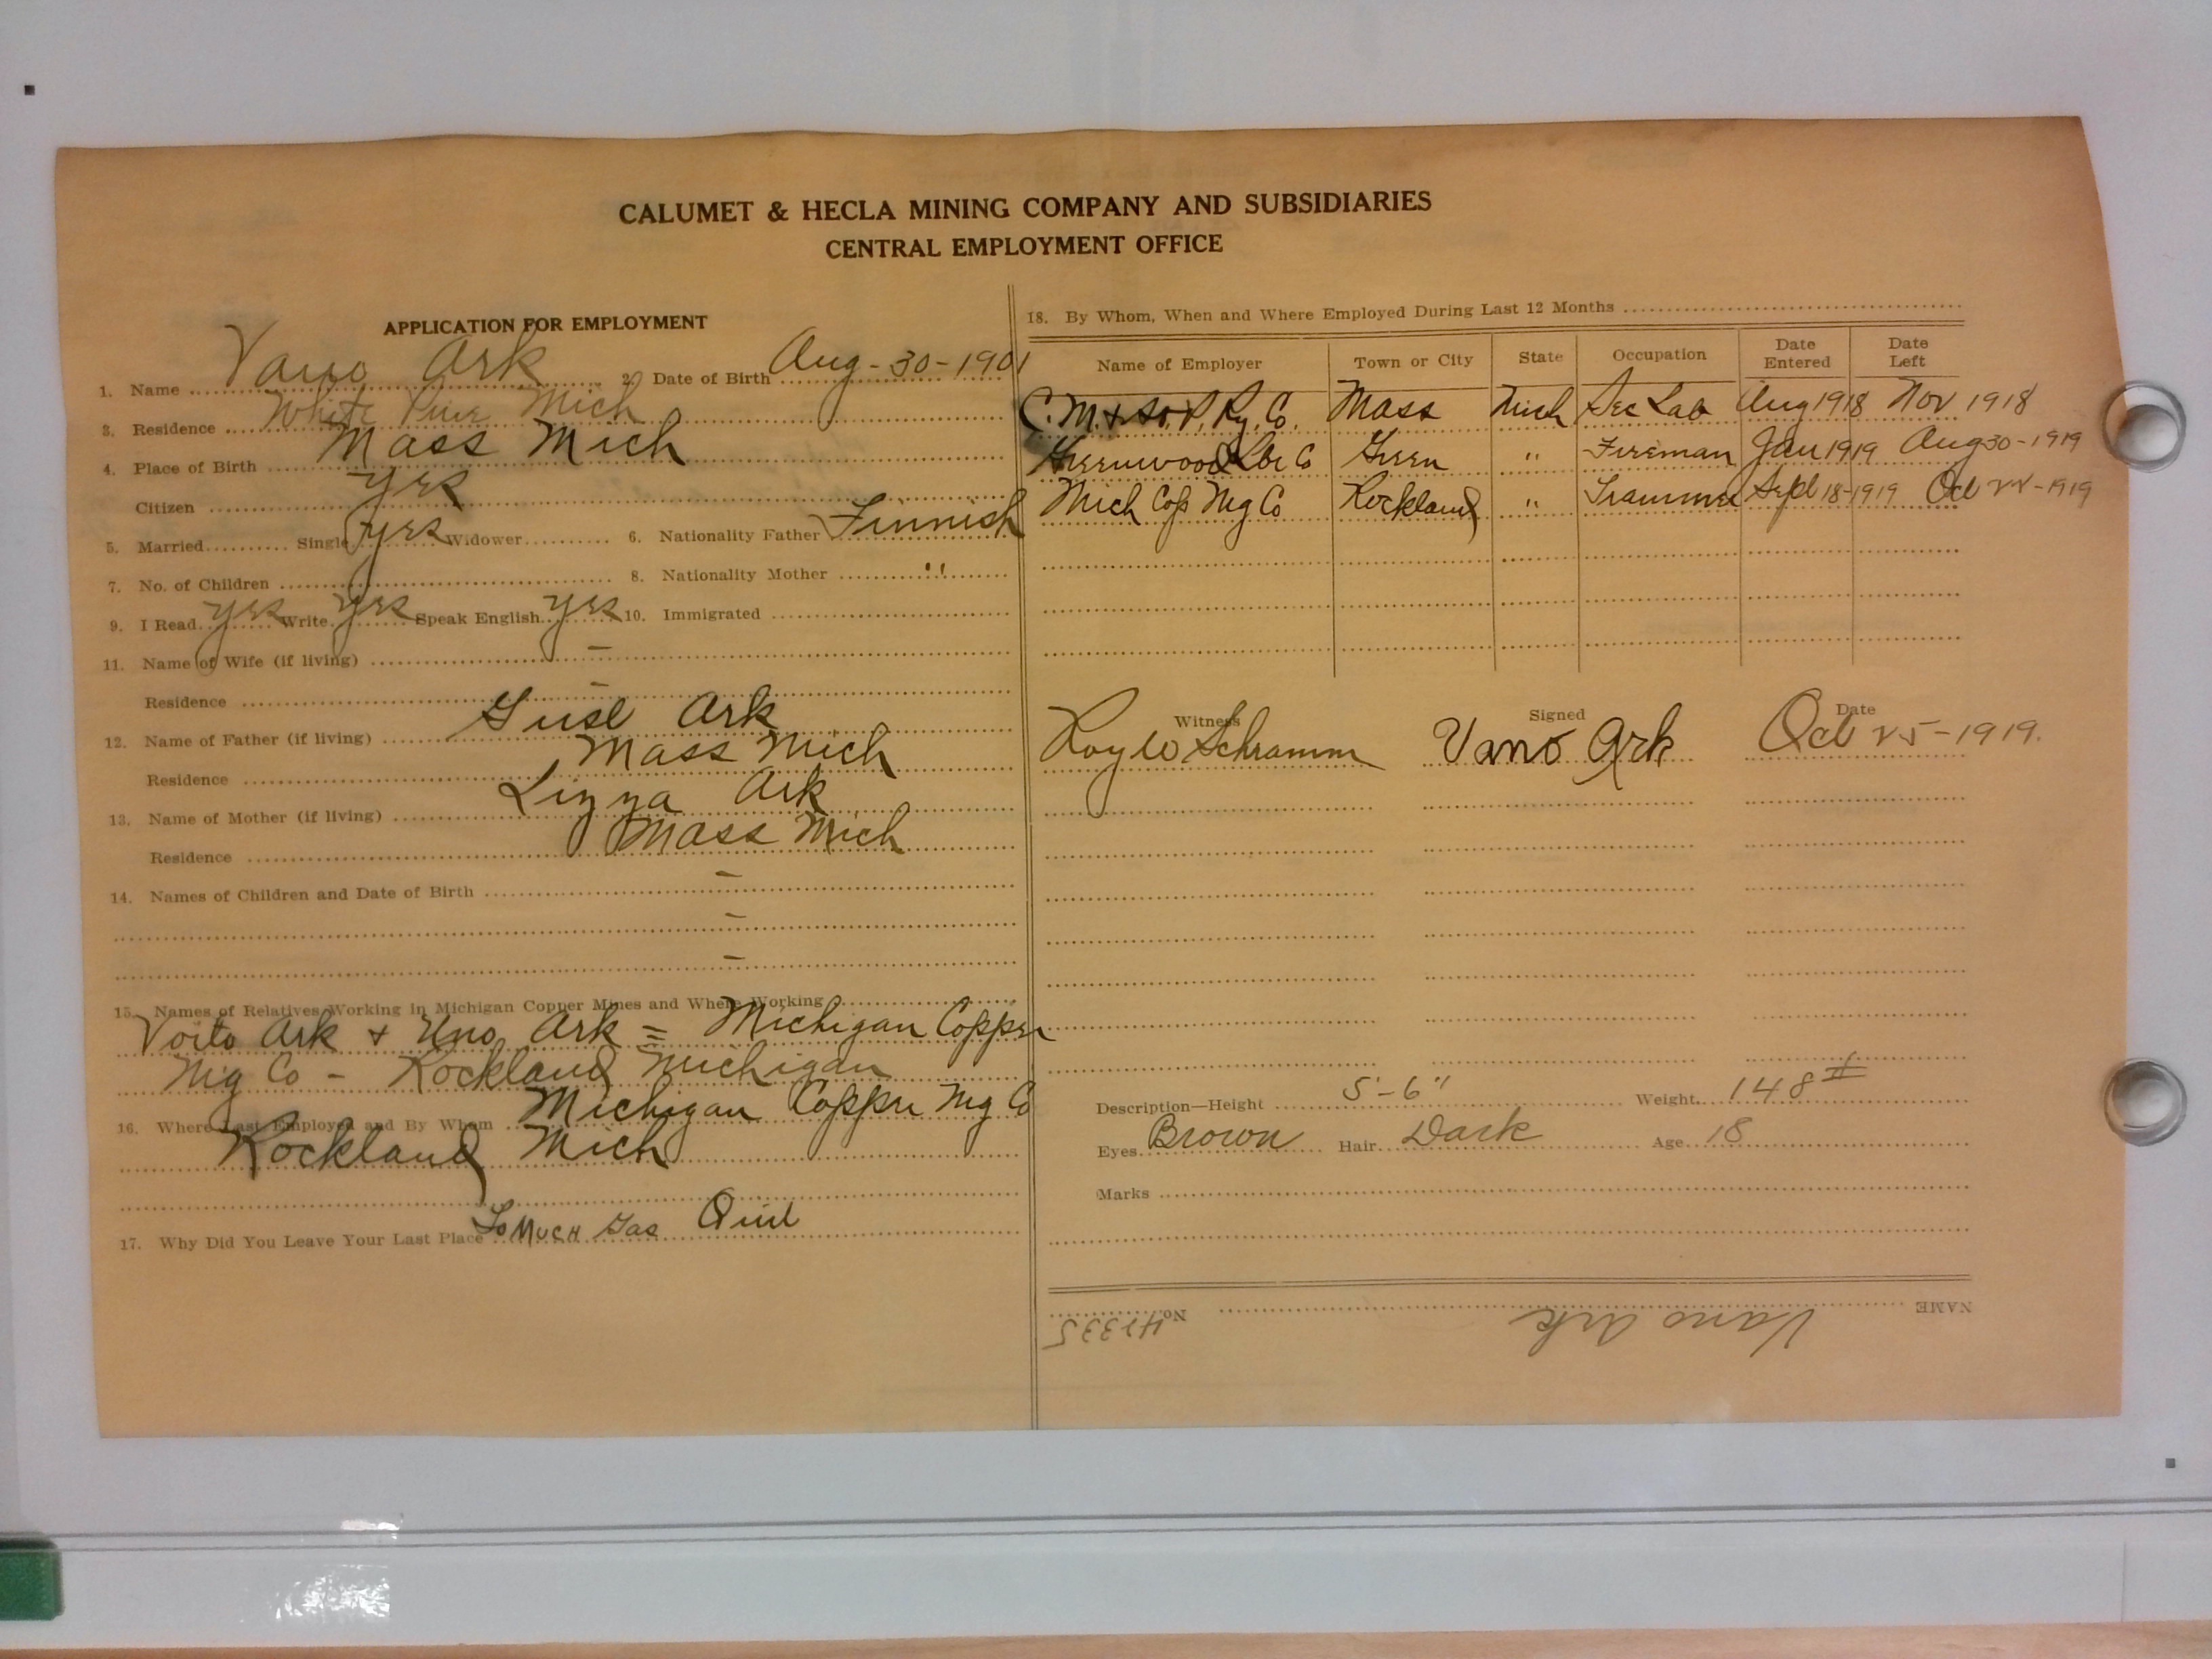 CALUMET & HECLA MINING COMPANY AND SUBSIDIARIES
CENTRAL EMPLOYMENT OFFICE
APPLICATION FOR EMPLOYMENT
1. Name Vano Ark 2. Date of Birth Aug-30-1901
3. Residence White Pine Mich
4. Place of Birth Mass Mich
Citizen yes
5. Married Single yes Widower 6. Nationality Father Finnish
7. No. of Children 8. Nationality Mother "
9. I Read yes Write yes Speak English yes 10. Immigrated
11. Name of Wife (if living) –
Residence –
12. Name of Father (if living) Gust Ark
Residence Mass Mich
13. Name of Mother (if living) Lizza Ark
Residence Mass Mich
14. Names of Children and Date of Birth –
–
–
15. Names of Relatives Working in Michigan Copper Mines and Where Working
Voito Ark + Uno Ark = Michigan Copper
Mg Co - Rockland Michigan
16. Where Last Employed and By Whom Michigan Copper Mg Co
Rockland Mich
17. Why Did You Leave Your Last Place To MUCH Gas Quit
18. By Whom, When and Where Employed During Last 12 Months
Name of Employer Town or City State Occupation Date Entered Date Left
C. M. & St. P. Ry. Co. Mass Mich Sec Lab Aug 1918 Nov 1918
Greenwood Lbr Co Green " Fireman Jan 1919 Aug 30-1919
Mich Cop Mg Co Rockland " Trammer Sept 18-1919 Oct 22-1919
Witness Signed Date
Roy W Schramm Vano Ark Oct 25-1919.
Description—Height 5'-6" Weight 148#
Eyes Brown Hair Dark Age 18
Marks
NAME Vano Ark No. 41335